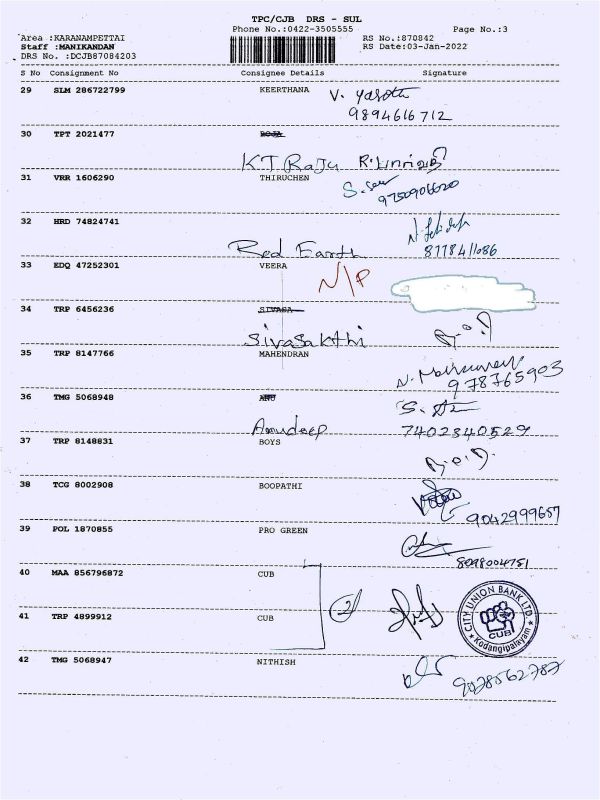 TPC/CJB DRS - SUL
Phone No.:0422-3505555 Page No.:3
Area :KARANAMPETTAI RS No.:870842
Staff :MANIKANDAN RS Date:03-Jan-2022
DRS No. :DCJB87084203
S No Consignment No Consignee Details Signature
29 SLM 286722799 KEERTHANA
9894616712
30 TPT 2021477
KT Raju
31 VRR 1606290 THIRUCHEN
9750906620
32 HRD 74824741
Red Earth
33 EDQ 47252301 VEERA N/P
34 TRP 6456236 SIVASA
Sivasakthi
35 TRP 8147766 MAHENDRAN
978765903
36 TMG 5068948 ANU
Anudeep 7402340529
37 TRP 8148831 BOYS
38 TCG 8002908 BOOPATHI
9042999657
39 POL 1870855 PRO GREEN
8098004751
40 MAA 856796872 CUB
2
41 TRP 4899912 CUB
CITY UNION BANK LTD
CUB
Kodangipalayam
42 TMG 5068947 NITHISH